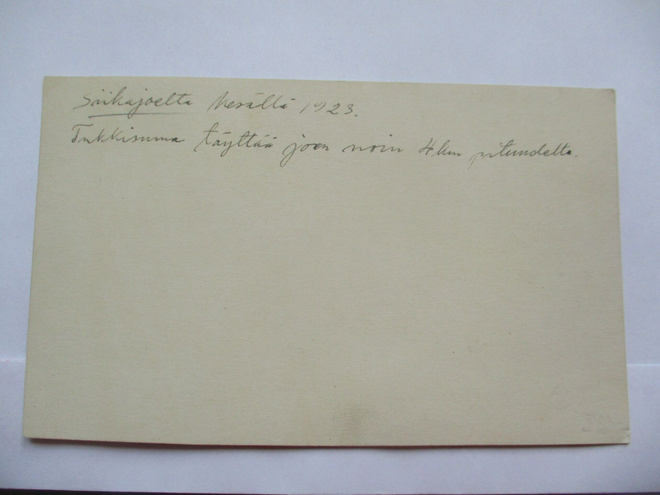 Siikajoelta kesällä 1923.
Tukkisuma täyttää joen noin 4 km pituudelta.